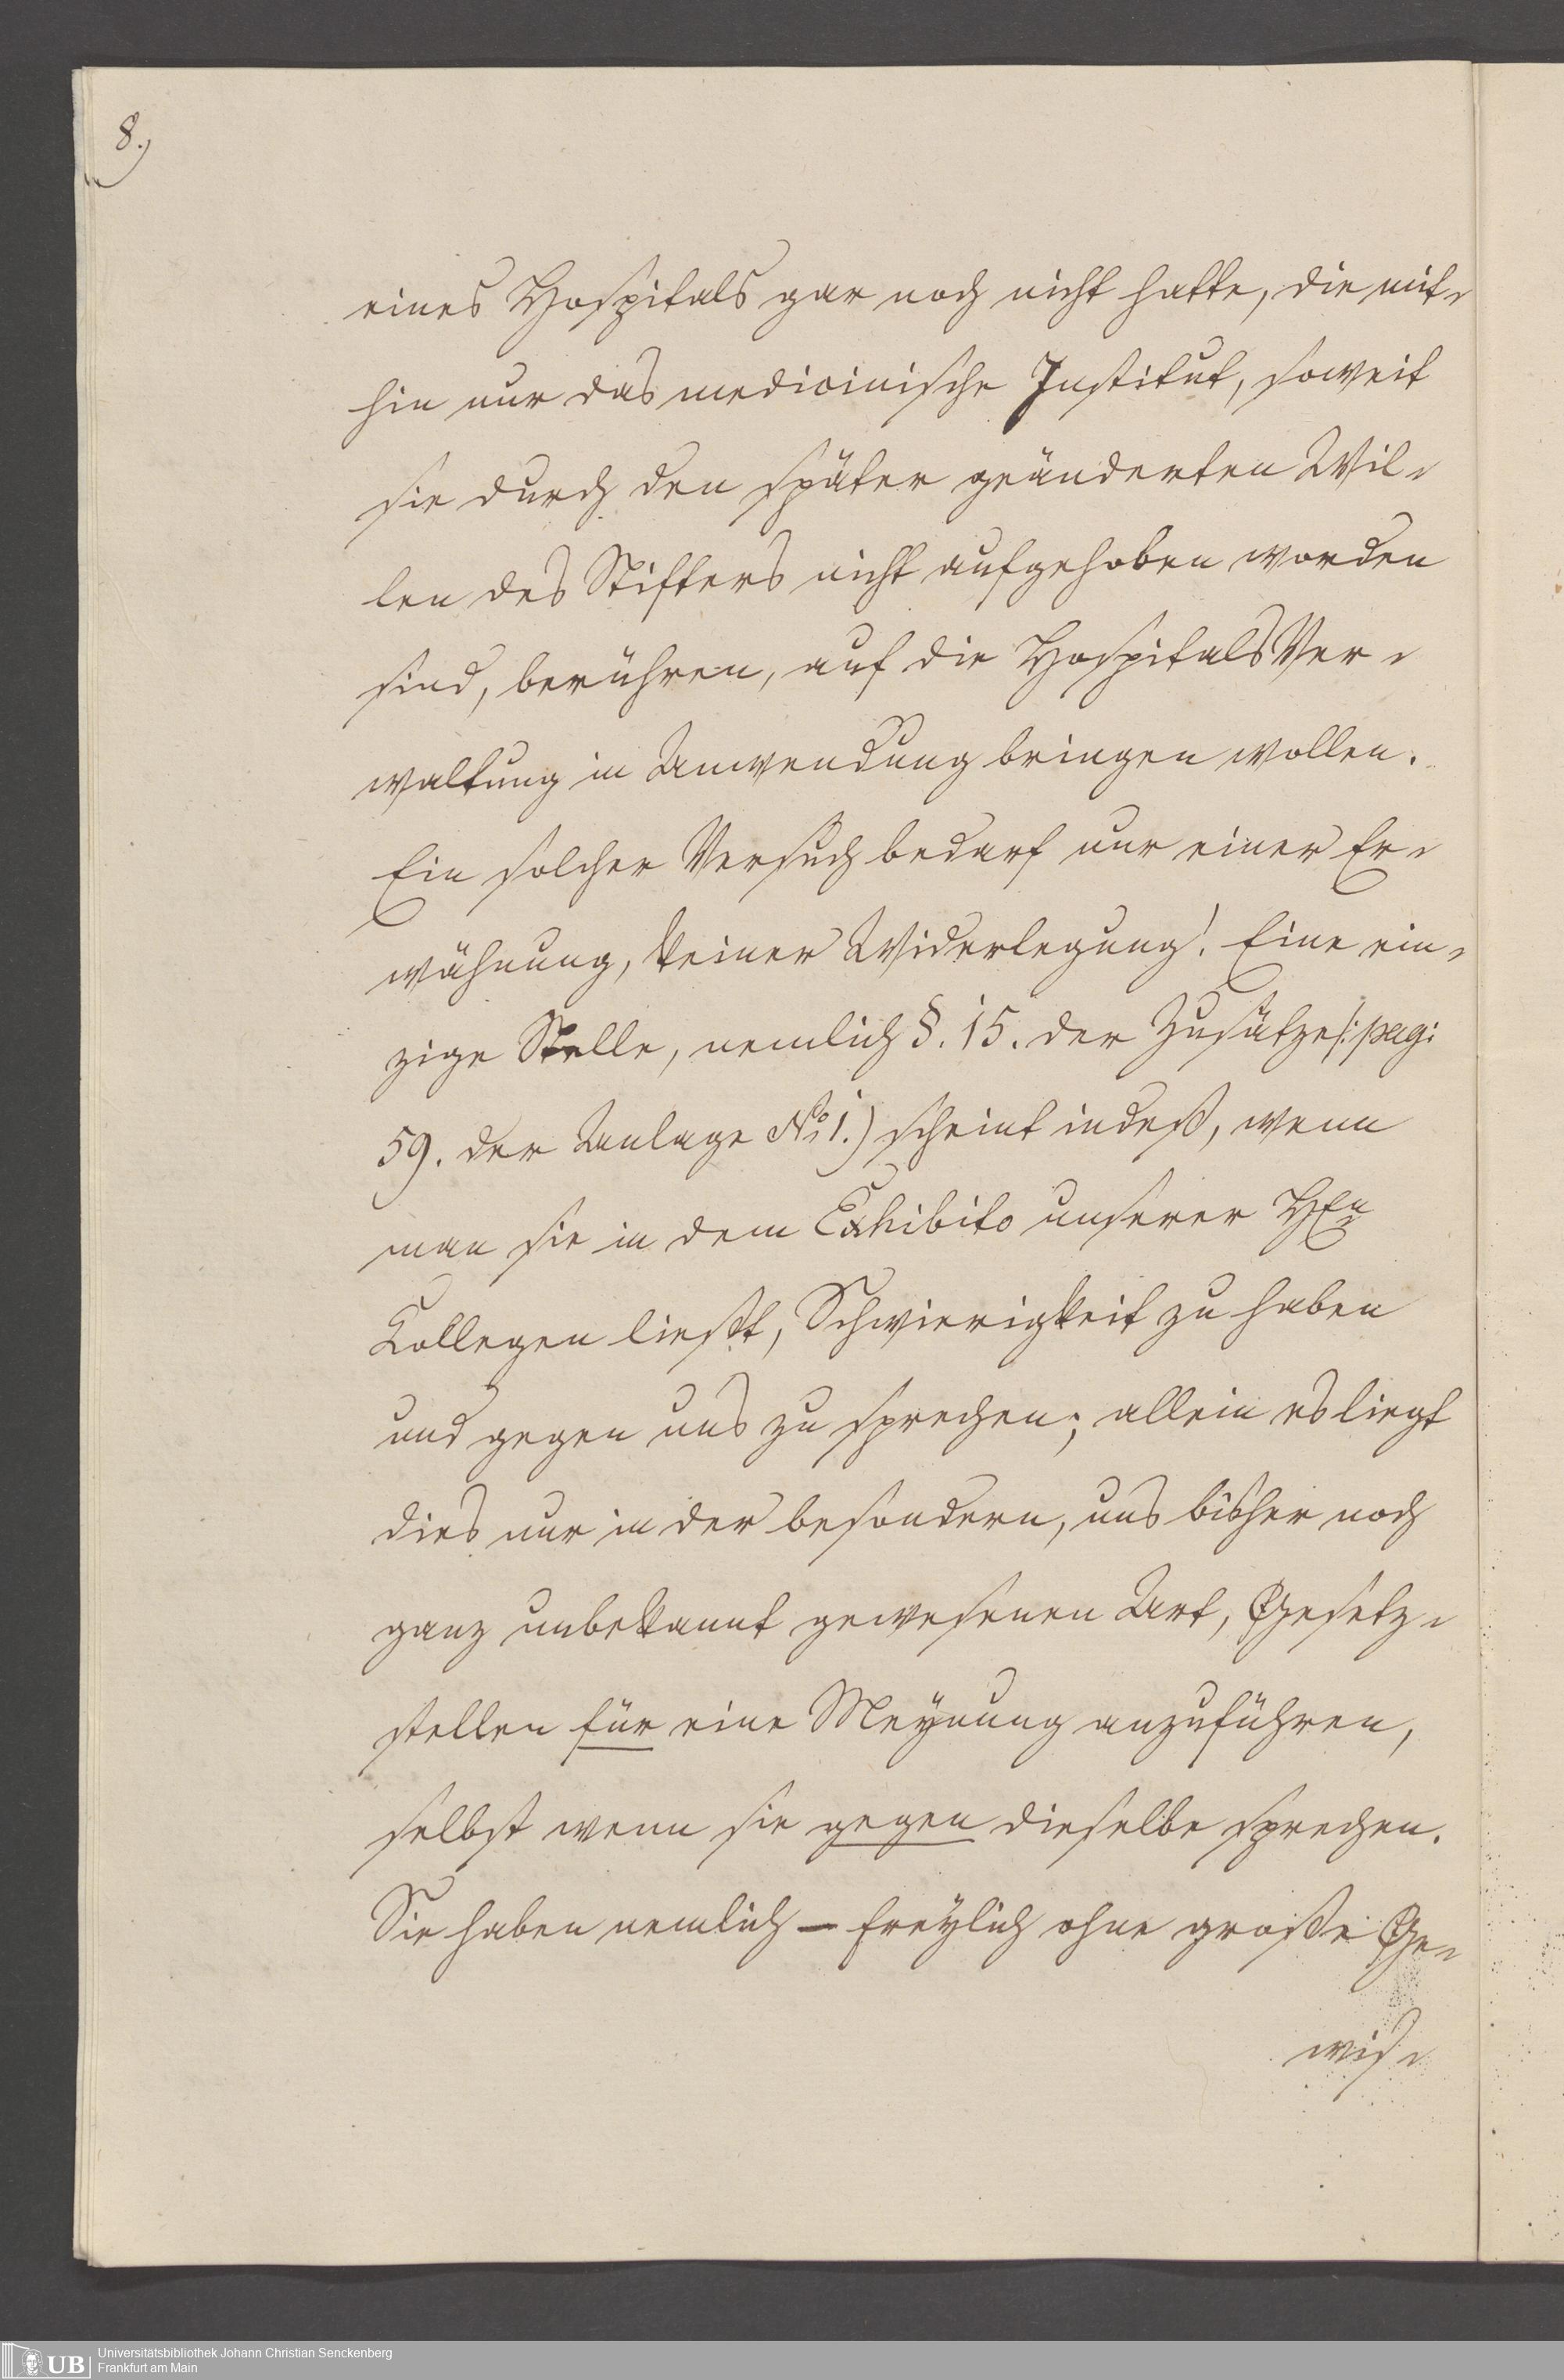 8.)
eines Hospitals gar noch nicht hatte, die mit-
hin nur das medicinische Institut, soweit
sie durch den später geänderten Wil-
len des Stifters nicht aufgehoben worden
sind, berühren, auf die HospitalsVer-
waltung in Anwendung bringen wollen.
Ein solcher Versuch bedarf nur einer Er-
wähnung, keiner Widerlegung! Eine ein-
zige Stelle, nemlich §. 15. der Zusätze /: pag:
59. der Anlage No. 1.) scheint indeß, wenn
man sie in dem Exhibito unserer HEn
Collegen ließt, Schwierigkeit zu haben
und gegen uns zu sprechen; allein es liegt
dies nur in der besondern, uns bisher noch
ganz unbekannt gewesenen Art, Gesetz-
stellen für eine Meynung anzuführen,
selbst wenn sie gegen dieselbe sprechen.
Sie haben nemlich — freylich ohne große Ge-
wis-
UB Universitätsbibliothek Johann Christian Senckenberg
Frankfurt am Main